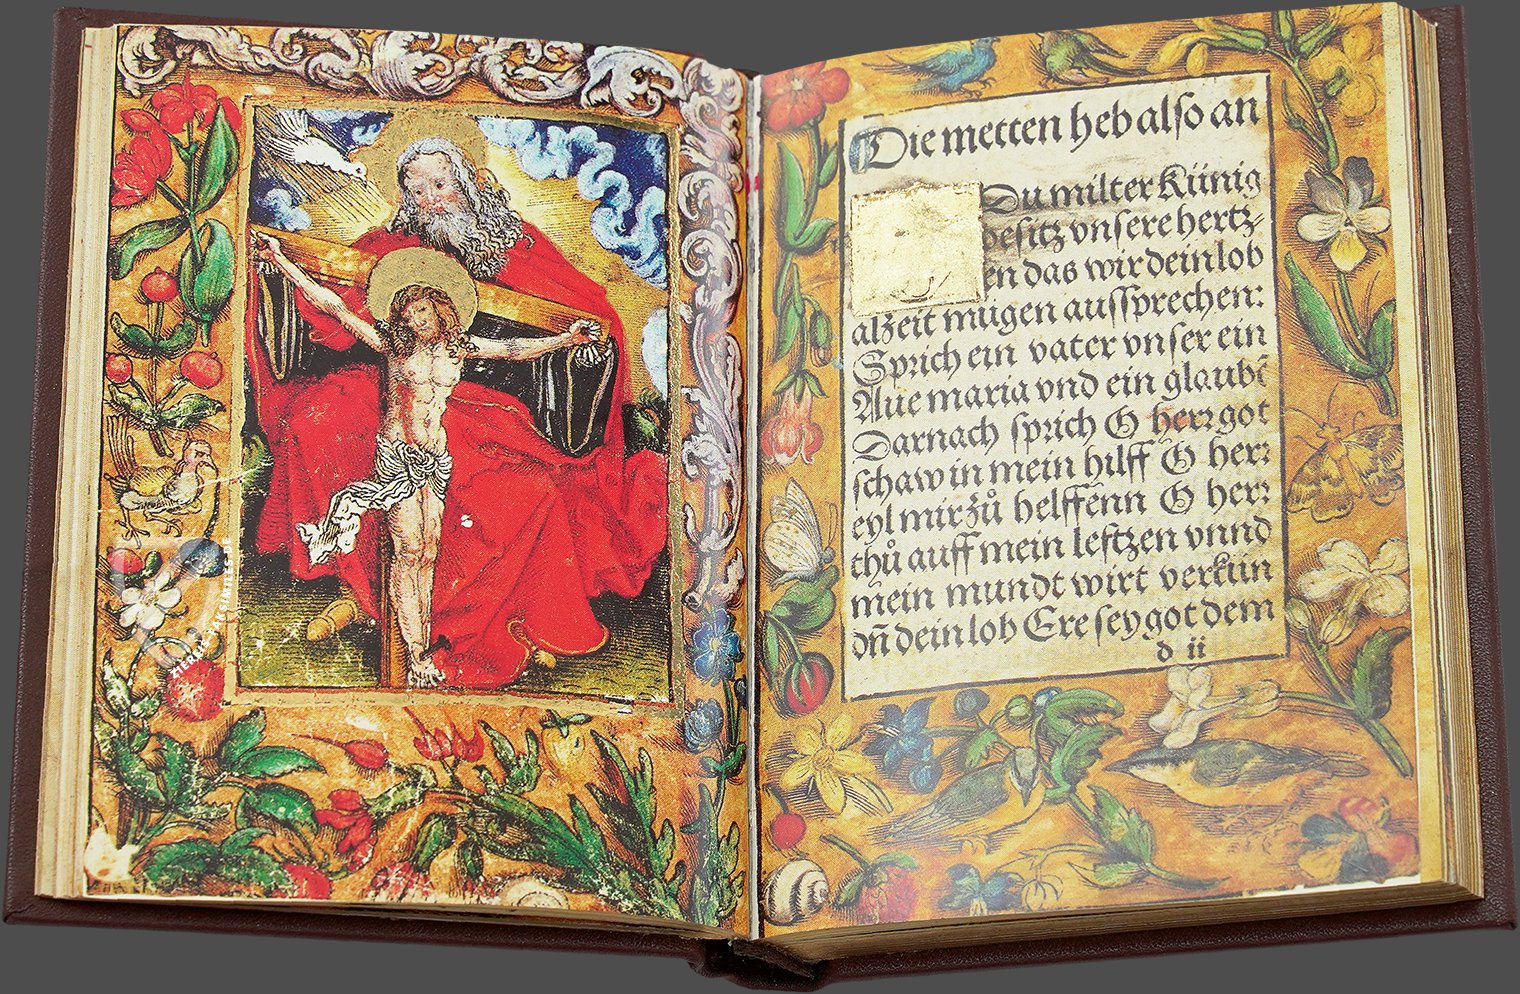 Die metten heb also an
Du milter Künig
besitz vnsere hertz-
en das wir dein lob
alzeit mügen aussprechen:
Sprich ein vater vnser ein
Aue maria vnd ein glaubē
Darnach sprich O herr got
schaw in mein hilff O herr
eyl mir zů helffenn O herr
thů auff mein leftzen vnnd
mein mundt wirt verkün
dñ dein lob Ere sey got dem
d ii
ZIEREIS FAKSIMILES.DE